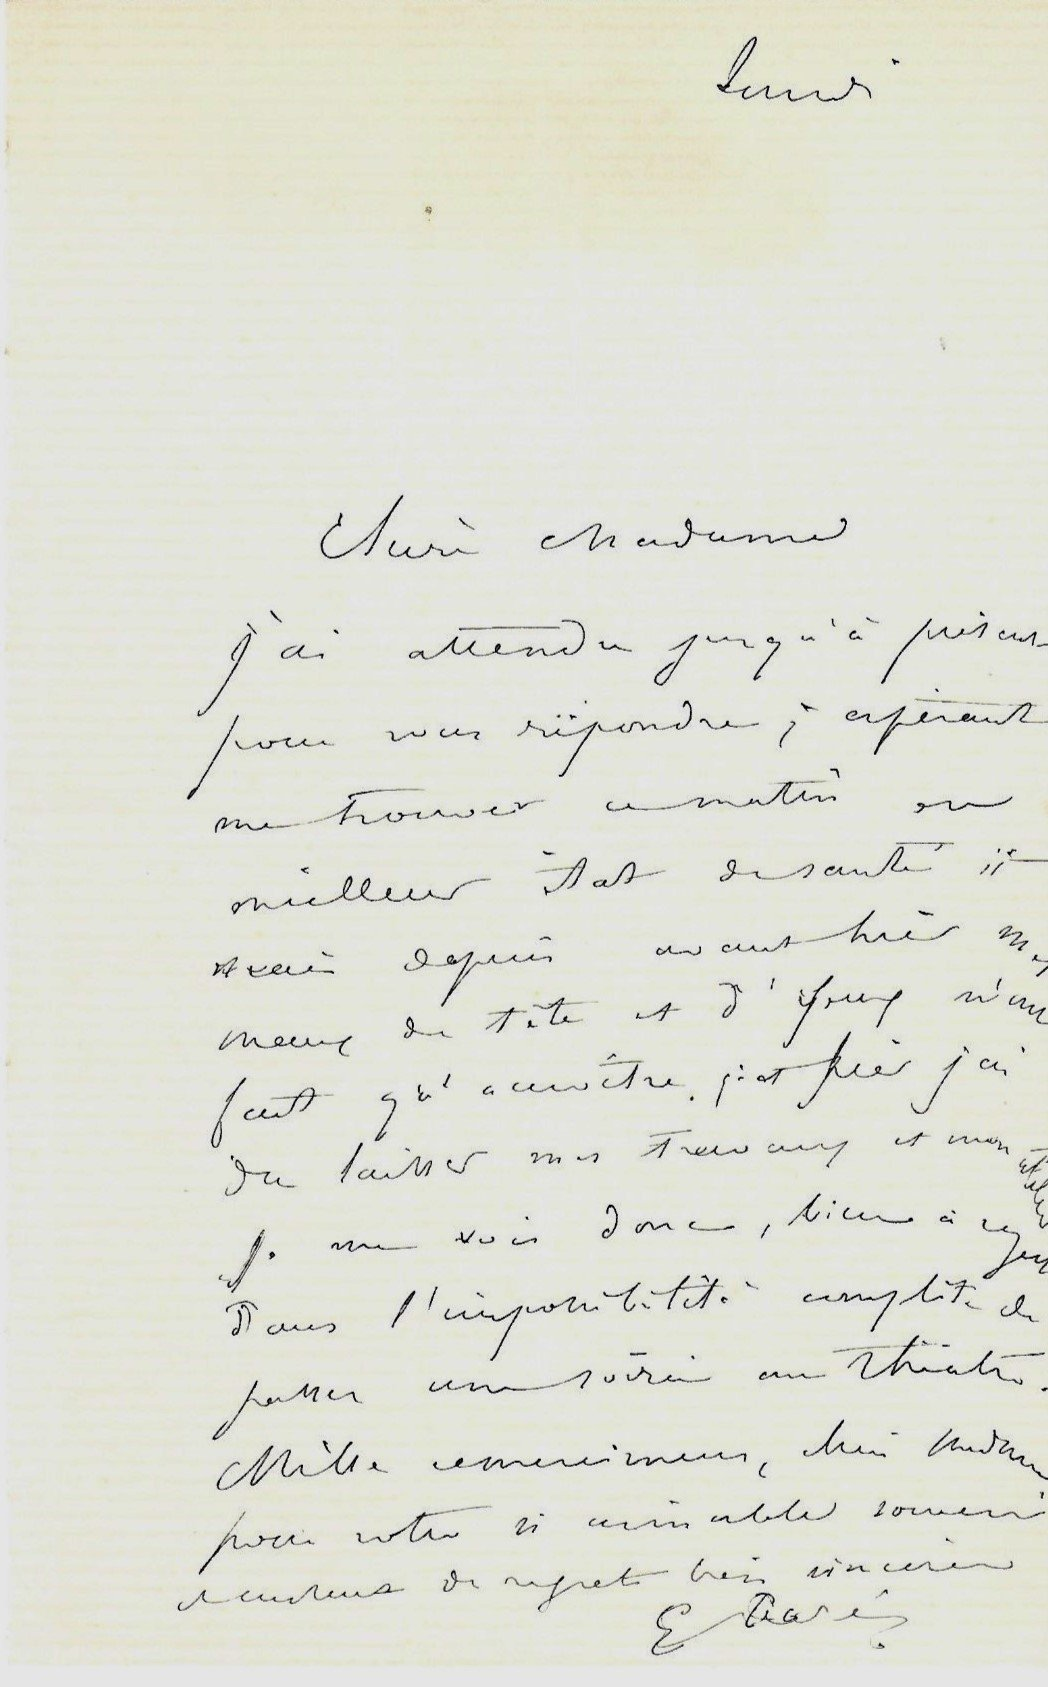 Lundi
Chère Madame
j'ai attendu jusqu'à présent
pour vous répondre, espérant
me trouver ce matin en
meilleur état de santé
mais depuis avant hier mes
maux de tête et d'yeux n'ont
fait qu'accroître, et hier j'ai
du laisser mes travaux et mon atelier
Je me vois donc, bien à regret
Dans l'impossibilité complète de
passer une soirée au Théatre.
Mille remerciemens, chère Madame
pour votre si aimable souvenir
de regrets bien sincères
E